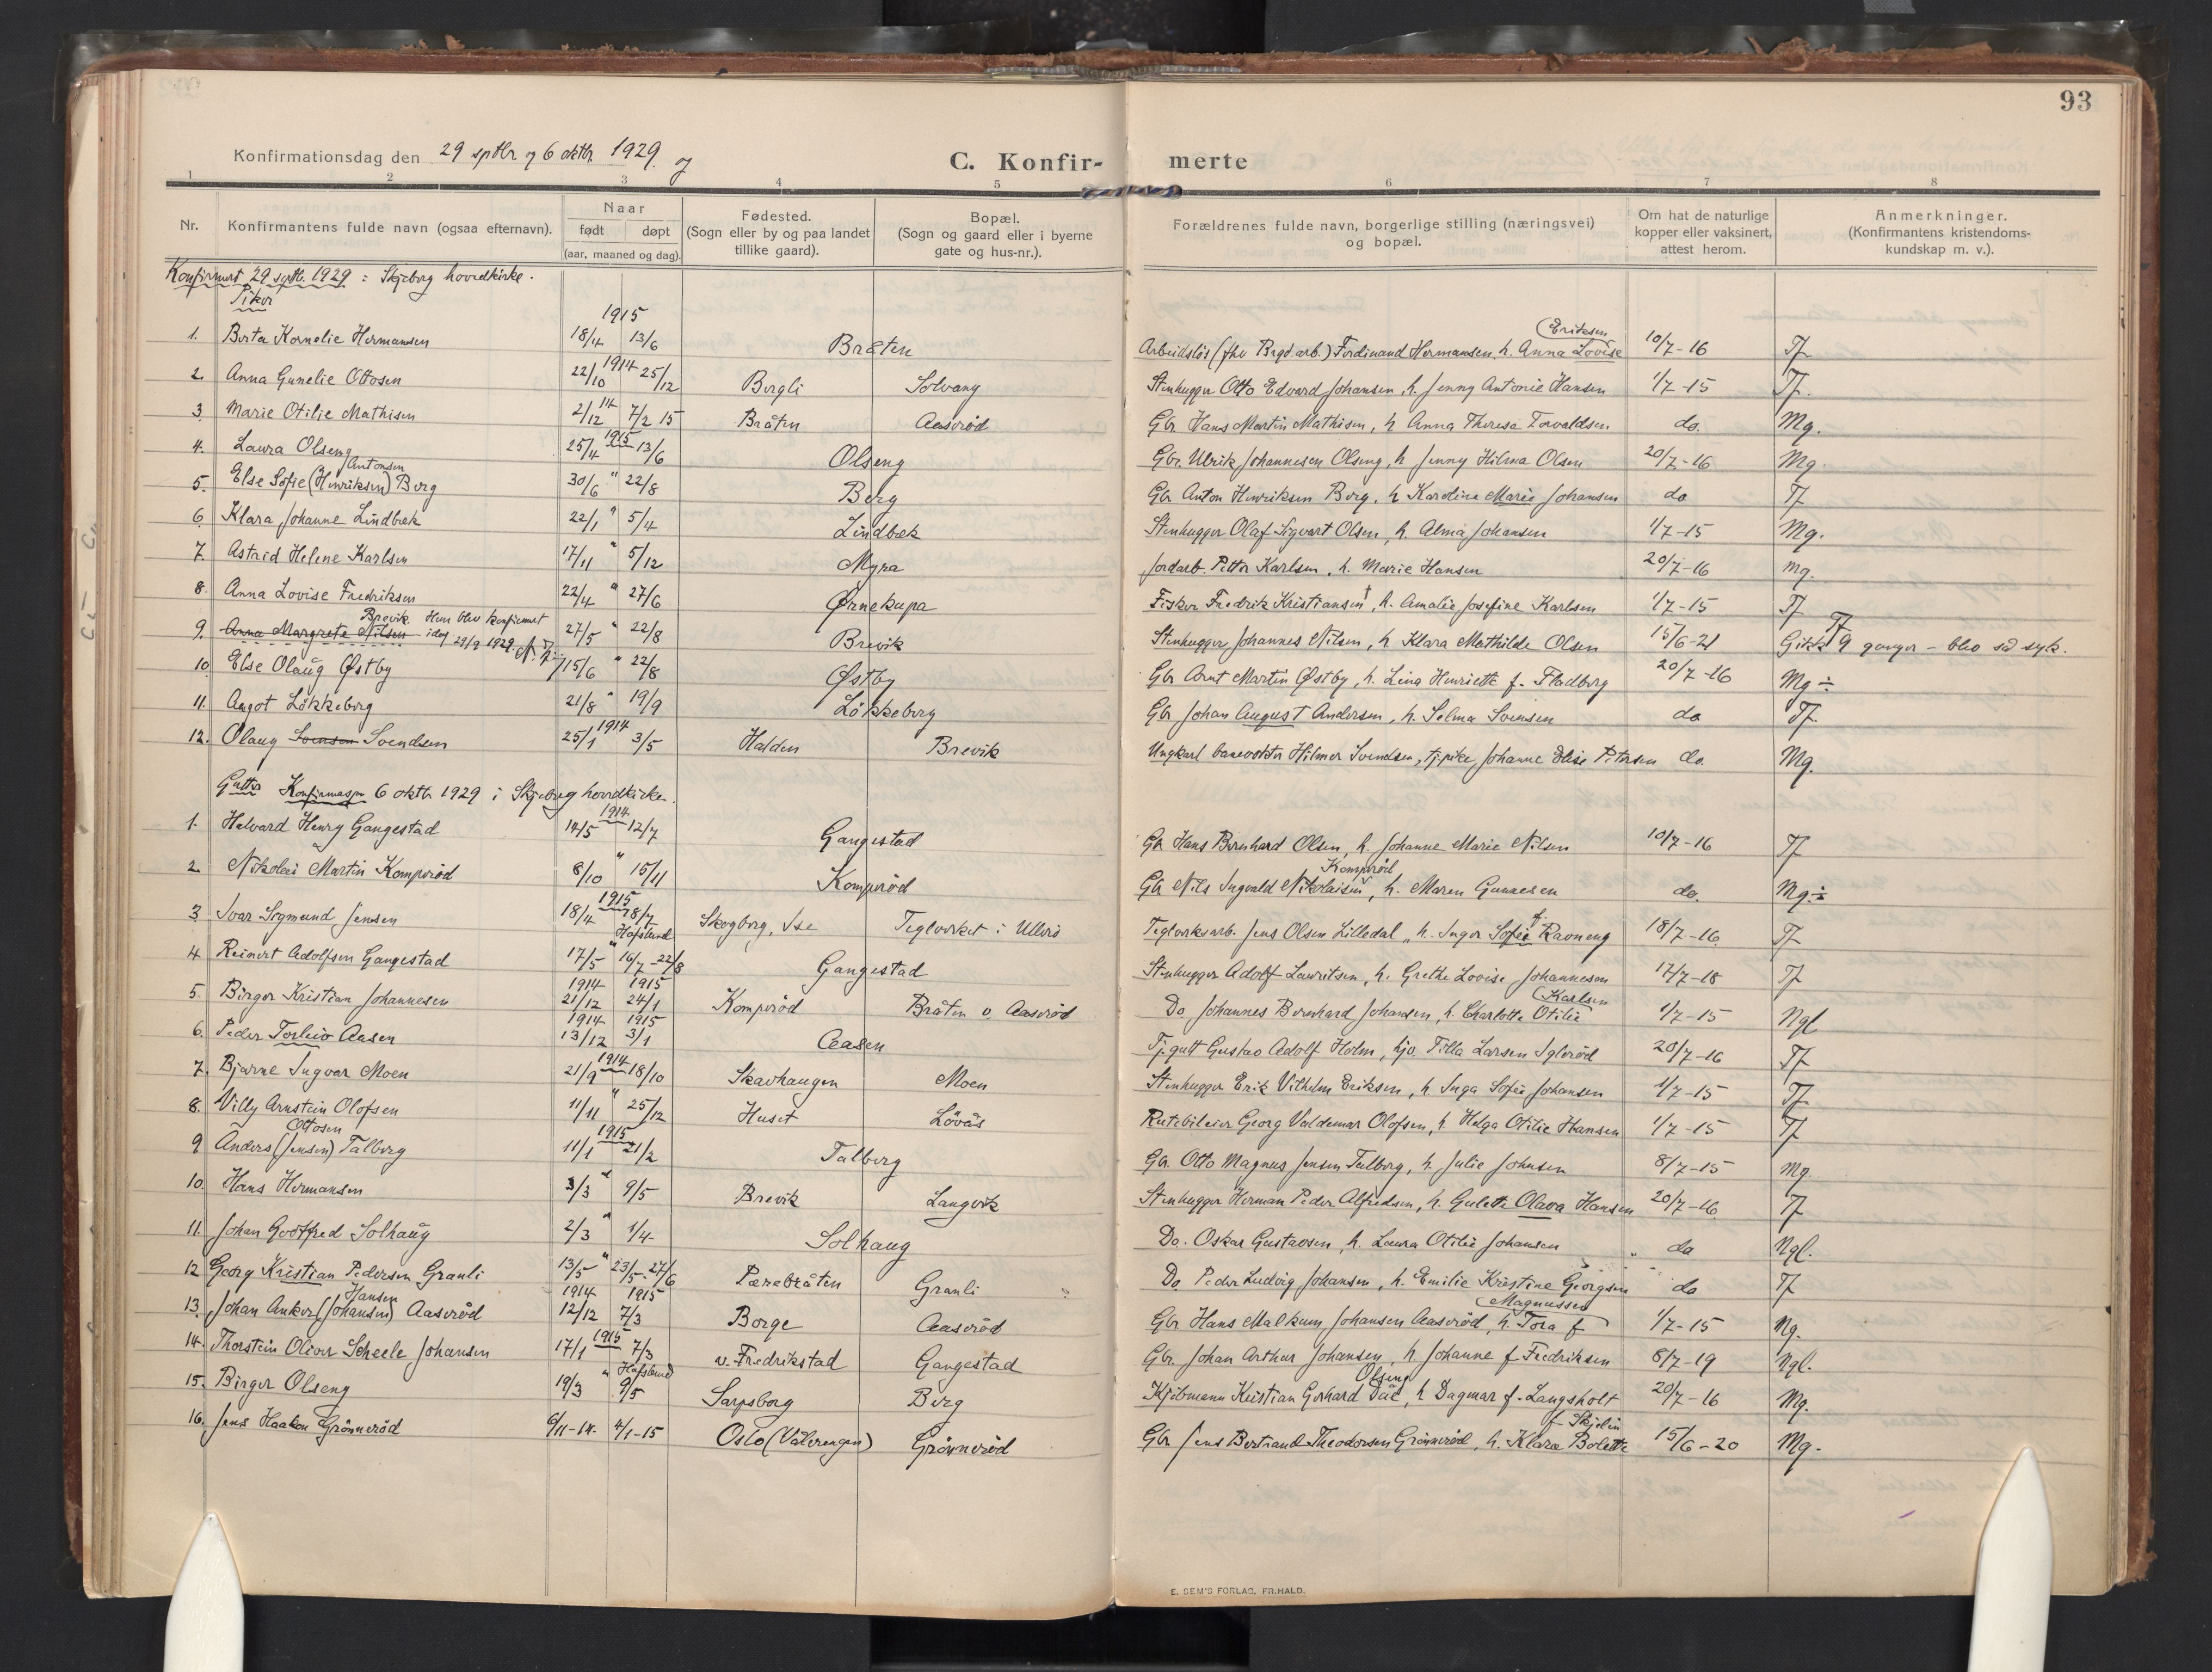 93
Konfirmationsdag den 29 sptbr og 6 oktbr 1929. og
C. Konfir- merte
1 2 3 4 5 6 7 8
Nr. Konfirmantens fulde navn (ogsaa efternavn). Naar født døpt (aar, maaned og dag). Fødested. (Sogn eller by og paa landet tillike gaard). Bopæl. (Sogn og gaard eller i byerne gate og hus-nr.). Forældrenes fulde navn, borgerlige stilling (næringsvei) og bopæl. Om hat de naturlige kopper eller vaksinert, attest herom. Anmerkninger. (Konfirmantens kristendoms- kundskap m. v.).
Konfirmert 29 septb. 1929 i Skjeberg hovedkirke.
Piker
1915
1. Berta Kornelie Hermansen 18/4 13/6 Bråten Arbeidsløs (fhv Brgd.arb.) Ferdinand Hermansen, h. Anna Lovise Eriksen 10/7-16 Tf
2. Anna Gunelie Ottosen 22/10 1914 25/12 Bergli Solvang Stenhugger Otto Edvard Johansen, h. Jenny Antonie Hansen 1/7-15 Tf.
3. Marie Otilie Mathisen 2/12 14 7/2 15 Bråten Aaserød Gbr Hans Martin Mathisen, h Anna Theresa Torvaldsen do. Mg.
4. Laura Olseng 25/4 1915 13/6 Olseng Gbr. Ulrik Johannesen Olseng, h Jenny Hilma Olsen 20/7-16 Mg.
5. Else Sofie (Henriksen) Antonsen Berg 30/6 " 22/8 Berg Gbr Anton Henriksen Berg, h Karoline Marie Johansen do Tf
6. Klara Johanne Lindbæk 22/1 " 5/4 Lindbæk Stenhugger Olaf Sigvart Olsen, h. Alma Johansen 1/7-15 Mg.
7. Astrid Helene Karlsen 17/11 " 5/12 Myra Jordarb. Petter Karlsen, h. Marie Hansen 20/7-16 Mg.
8. Anna Lovise Fredriksen 22/4 " 27/6 Ørnekupa Fisker Fredrik Kristiansen †, h. Amalie Josefine Karlsen 1/7-15 Tf
9. Anna Margrete Nilsen Brevik. Hun blev konfirmert idag 29/9 1929. 27/5 " 22/8 Brevik Stenhugger Johannes Nilsen, h Klara Mathilde Olsen 15/6-21 Tf Gikk 9 ganger - blev så syk.
10. Else Olaug Østby 15/6 " 22/8 Østby Gbr Arnt Martin Østby, h. Lina Henriette f. Fladberg 20/7-16 Mg ÷
11. Aagot Løkkeberg 21/8 " 19/9 Løkkeberg Gbr Johan August Andersen, h. Selma Svensen do Tf.
12. Olaug Svensen Svendsen 25/1 1914 3/5 Halden Brevik Ungkarl banevokter Hilmer Svendsen, tj.pike Johanne Elise Petersen do. Mg.
Gutter Konfirmasjon 6 oktbr 1929 i Skjeberg hovedkirke.
1. Halvard Henry Gangestad 14/5 1914 12/7 Gangestad Gbr Hans Bernhard Olsen, h. Johanne Marie Nilsen 10/7-16 Tf
2. Nikolai Martin Komperød 8/10 " 15/11 Komperød Gbr Nils Ingvald Nikolaisen Komperød, h. Maren Gunnesen do. Mg.÷
3. Ivar Sigmund Jensen 18/4 1915 18/7 Hafslund Skogborg, Ise Teglverket i Ullerø Teglverksarb. Jens Olsen Lilledal, h. Inger Sofie f. Ravneng 18/7-16 Tf
4. Reinert Adolfsen Gangestad 17/5 " 16/7-22/8 Gangestad Stenhugger Adolf Lauritsen, h. Grethe Lovise Johannesen 17/7-18 Tf
5. Birger Kristian Johannesen 1914 21/12 1915 24/1 Komperød Bråten v. Aaserød Do Johannes Bernhard Johansen, h. Charlotte Otilie Karlsen 1/7-15 Ngl
6. Peder Torleiv Aasen 1914 13/12 1915 3/1 Aasen Tj.gutt Gustav Adolf Holm, hjv. Tilla Larsen Iglerød 20/7-16 Tf
7. Bjarne Ingvar Moen 21/9 1914 18/10 Skavhaugen Moen Stenhugger Erik Vilhelm Eriksen, h Inga Sofie Johansen 1/7-15 Tf
8. Villy Arnstein Olofsen 11/11 " 25/12 Huset Løvås Rutebileier Georg Valdemar Olofsen, h Helga Otilie Hansen 1/7-15 Tf
9 Anders (Jensen) Ottosen Talberg 11/1 1915 21/2 Talberg Gbr. Otto Magnus Jensen Talberg, h. Julie Johnsen 8/7-15 Mg.
10. Hans Hermansen 3/3 " 9/5 Brevik Langvik Stenhugger Herman Peder Alfredsen, h. Gulette Olava Hansen 20/7-16 Tf
11. Johan Gottfred Solhaug 2/3 " 1/4 Solhaug Do. Oskar Gustavsen, h. Laura Otilie Johansen do Ngl.
12 Georg Kristian Pedersen Granli 13/5 " 23/5-27/6 Pærebråten Granli Do. Peder Ludvig Johansen, h. Emilie Kristine Georgsen do Tf
13. Johan Anker (Johansen) Hansen Aaserød 1914 12/12 1915 7/3 Borge Aaserød Gbr Hans Malkum Johansen Aaserød, h. Tora f Magnussen 1/7-15 Mg.
14. Thorstein Oliver Scheele Johansen 17/1 1915 7/3 v. Fredrikstad Gangestad Gbr. Johan Arthur Johansen, h Johanne f. Fredriksen 8/7-19 Ngl.
15. Birger Olseng 19/3 " Hafslund 9/5 Sarpsborg Berg Kjøbmann Kristian Gerhard Olseng, h Dagmar f. Langsholt 20/7-16 Mg.
16. Jens Haakon Grønnerød 6/11-14. 4/1-15 Oslo (Vålerengen) Grønnerød Gbr Jens Bertrand Theodorsen Grønnerød, h. Klara Bolette f. Skjelin 15/6-20 Mg.
E. SEM'S FORLAG, FR.HALD.